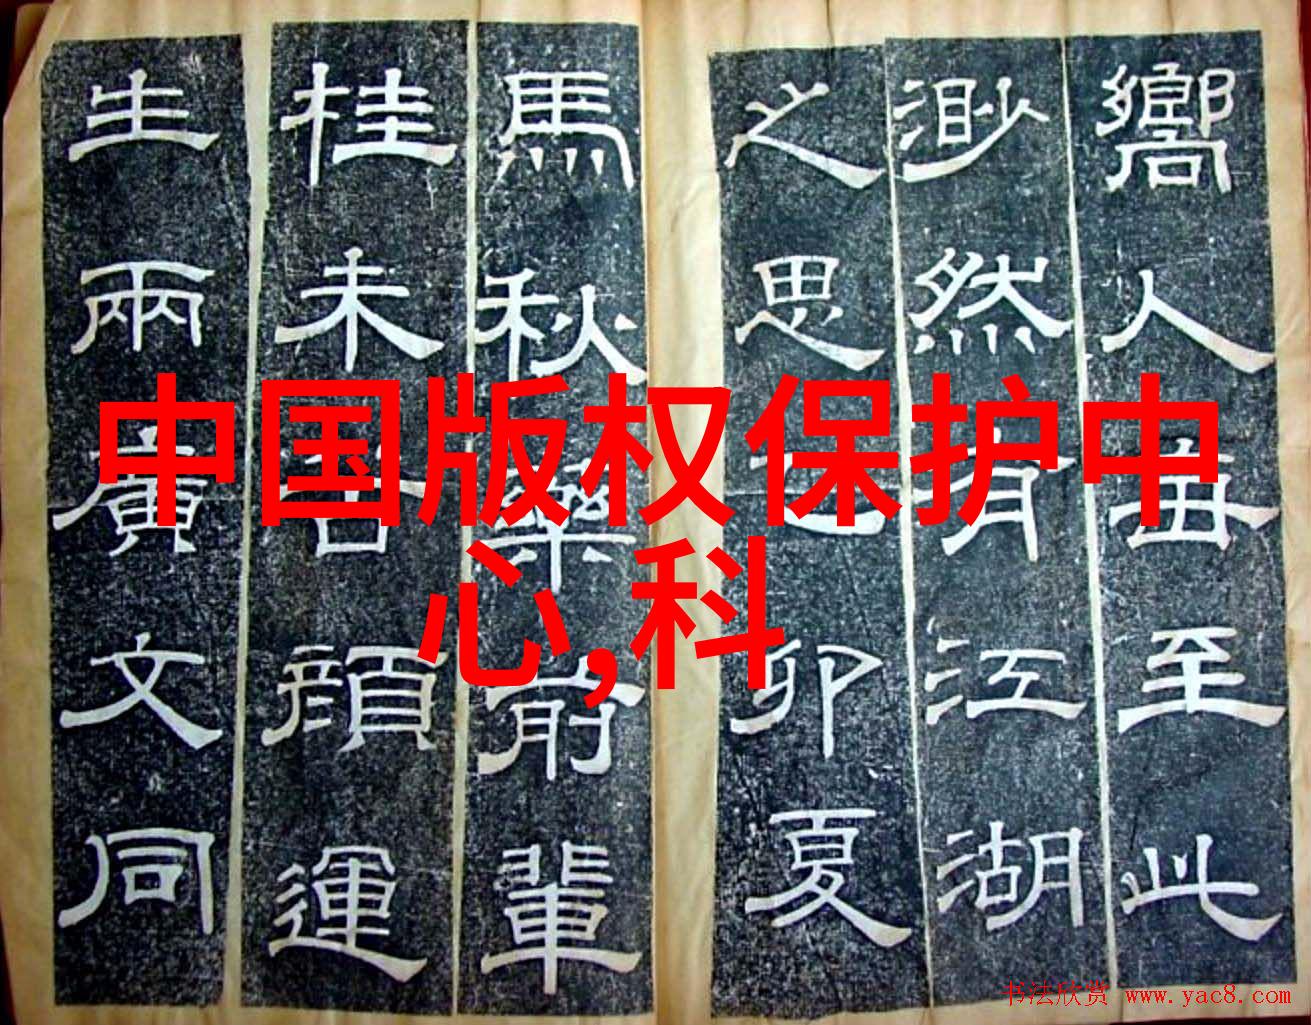 嚮人每至此
渺然有江湖
之思乙卯夏
馬秋藥前輩
桂未谷顏運
生兩廣文同
中国版权保护中
心,科
书法欣赏 www.yac8.com